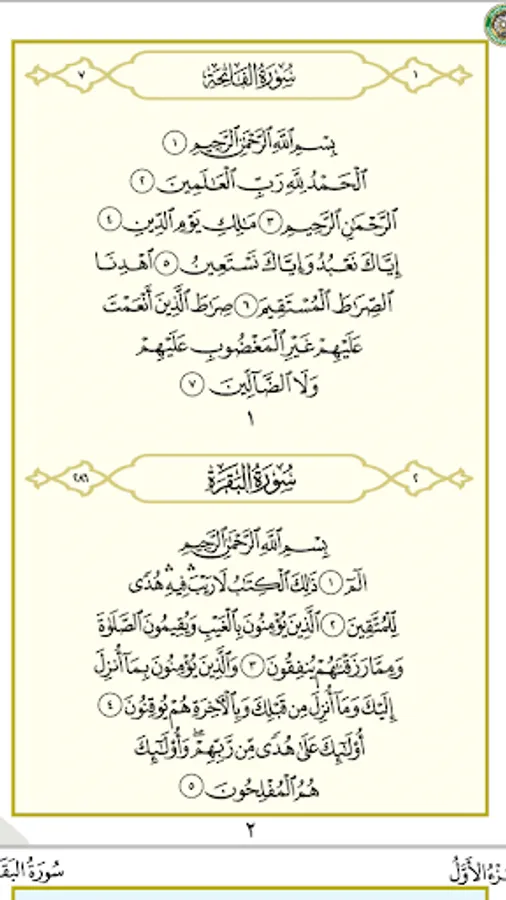 ١ سُورَةُ الْفَاتِحَةِ ٧
بِسْمِ ٱللَّهِ ٱلرَّحْمَٰنِ ٱلرَّحِيمِ ١
ٱلْحَمْدُ لِلَّهِ رَبِّ ٱلْعَٰلَمِينَ ٢
ٱلرَّحْمَٰنِ ٱلرَّحِيمِ ٣ مَٰلِكِ يَوْمِ ٱلدِّينِ ٤
إِيَّاكَ نَعْبُدُ وَإِيَّاكَ نَسْتَعِينُ ٥ ٱهْدِنَا
ٱلصِّرَٰطَ ٱلْمُسْتَقِيمَ ٦ صِرَٰطَ ٱلَّذِينَ أَنْعَمْتَ
عَلَيْهِمْ غَيْرِ ٱلْمَغْضُوبِ عَلَيْهِمْ
وَلَا ٱلضَّآلِّينَ ٧
١
٢ سُورَةُ الْبَقَرَةِ ٢٨٦
بِسْمِ ٱللَّهِ ٱلرَّحْمَٰنِ ٱلرَّحِيمِ
الٓمٓ ١ ذَٰلِكَ ٱلْكِتَٰبُ لَا رَيْبَۛ فِيهِۛ هُدًى
لِّلْمُتَّقِينَ ٢ ٱلَّذِينَ يُؤْمِنُونَ بِٱلْغَيْبِ وَيُقِيمُونَ ٱلصَّلَوٰةَ
وَمِمَّا رَزَقْنَٰهُمْ يُنفِقُونَ ٣ وَٱلَّذِينَ يُؤْمِنُونَ بِمَآ أُنزِلَ
إِلَيْكَ وَمَآ أُنزِلَ مِن قَبْلِكَ وَبِٱلْءَاخِرَةِ هُمْ يُوقِنُونَ ٤
أُو۟لَٰٓئِكَ عَلَىٰ هُدًى مِّن رَّبِّهِمْۖ وَأُو۟لَٰٓئِكَ
هُمُ ٱلْمُفْلِحُونَ ٥
٢
ٱلْأَوَّلُ سُورَةُ